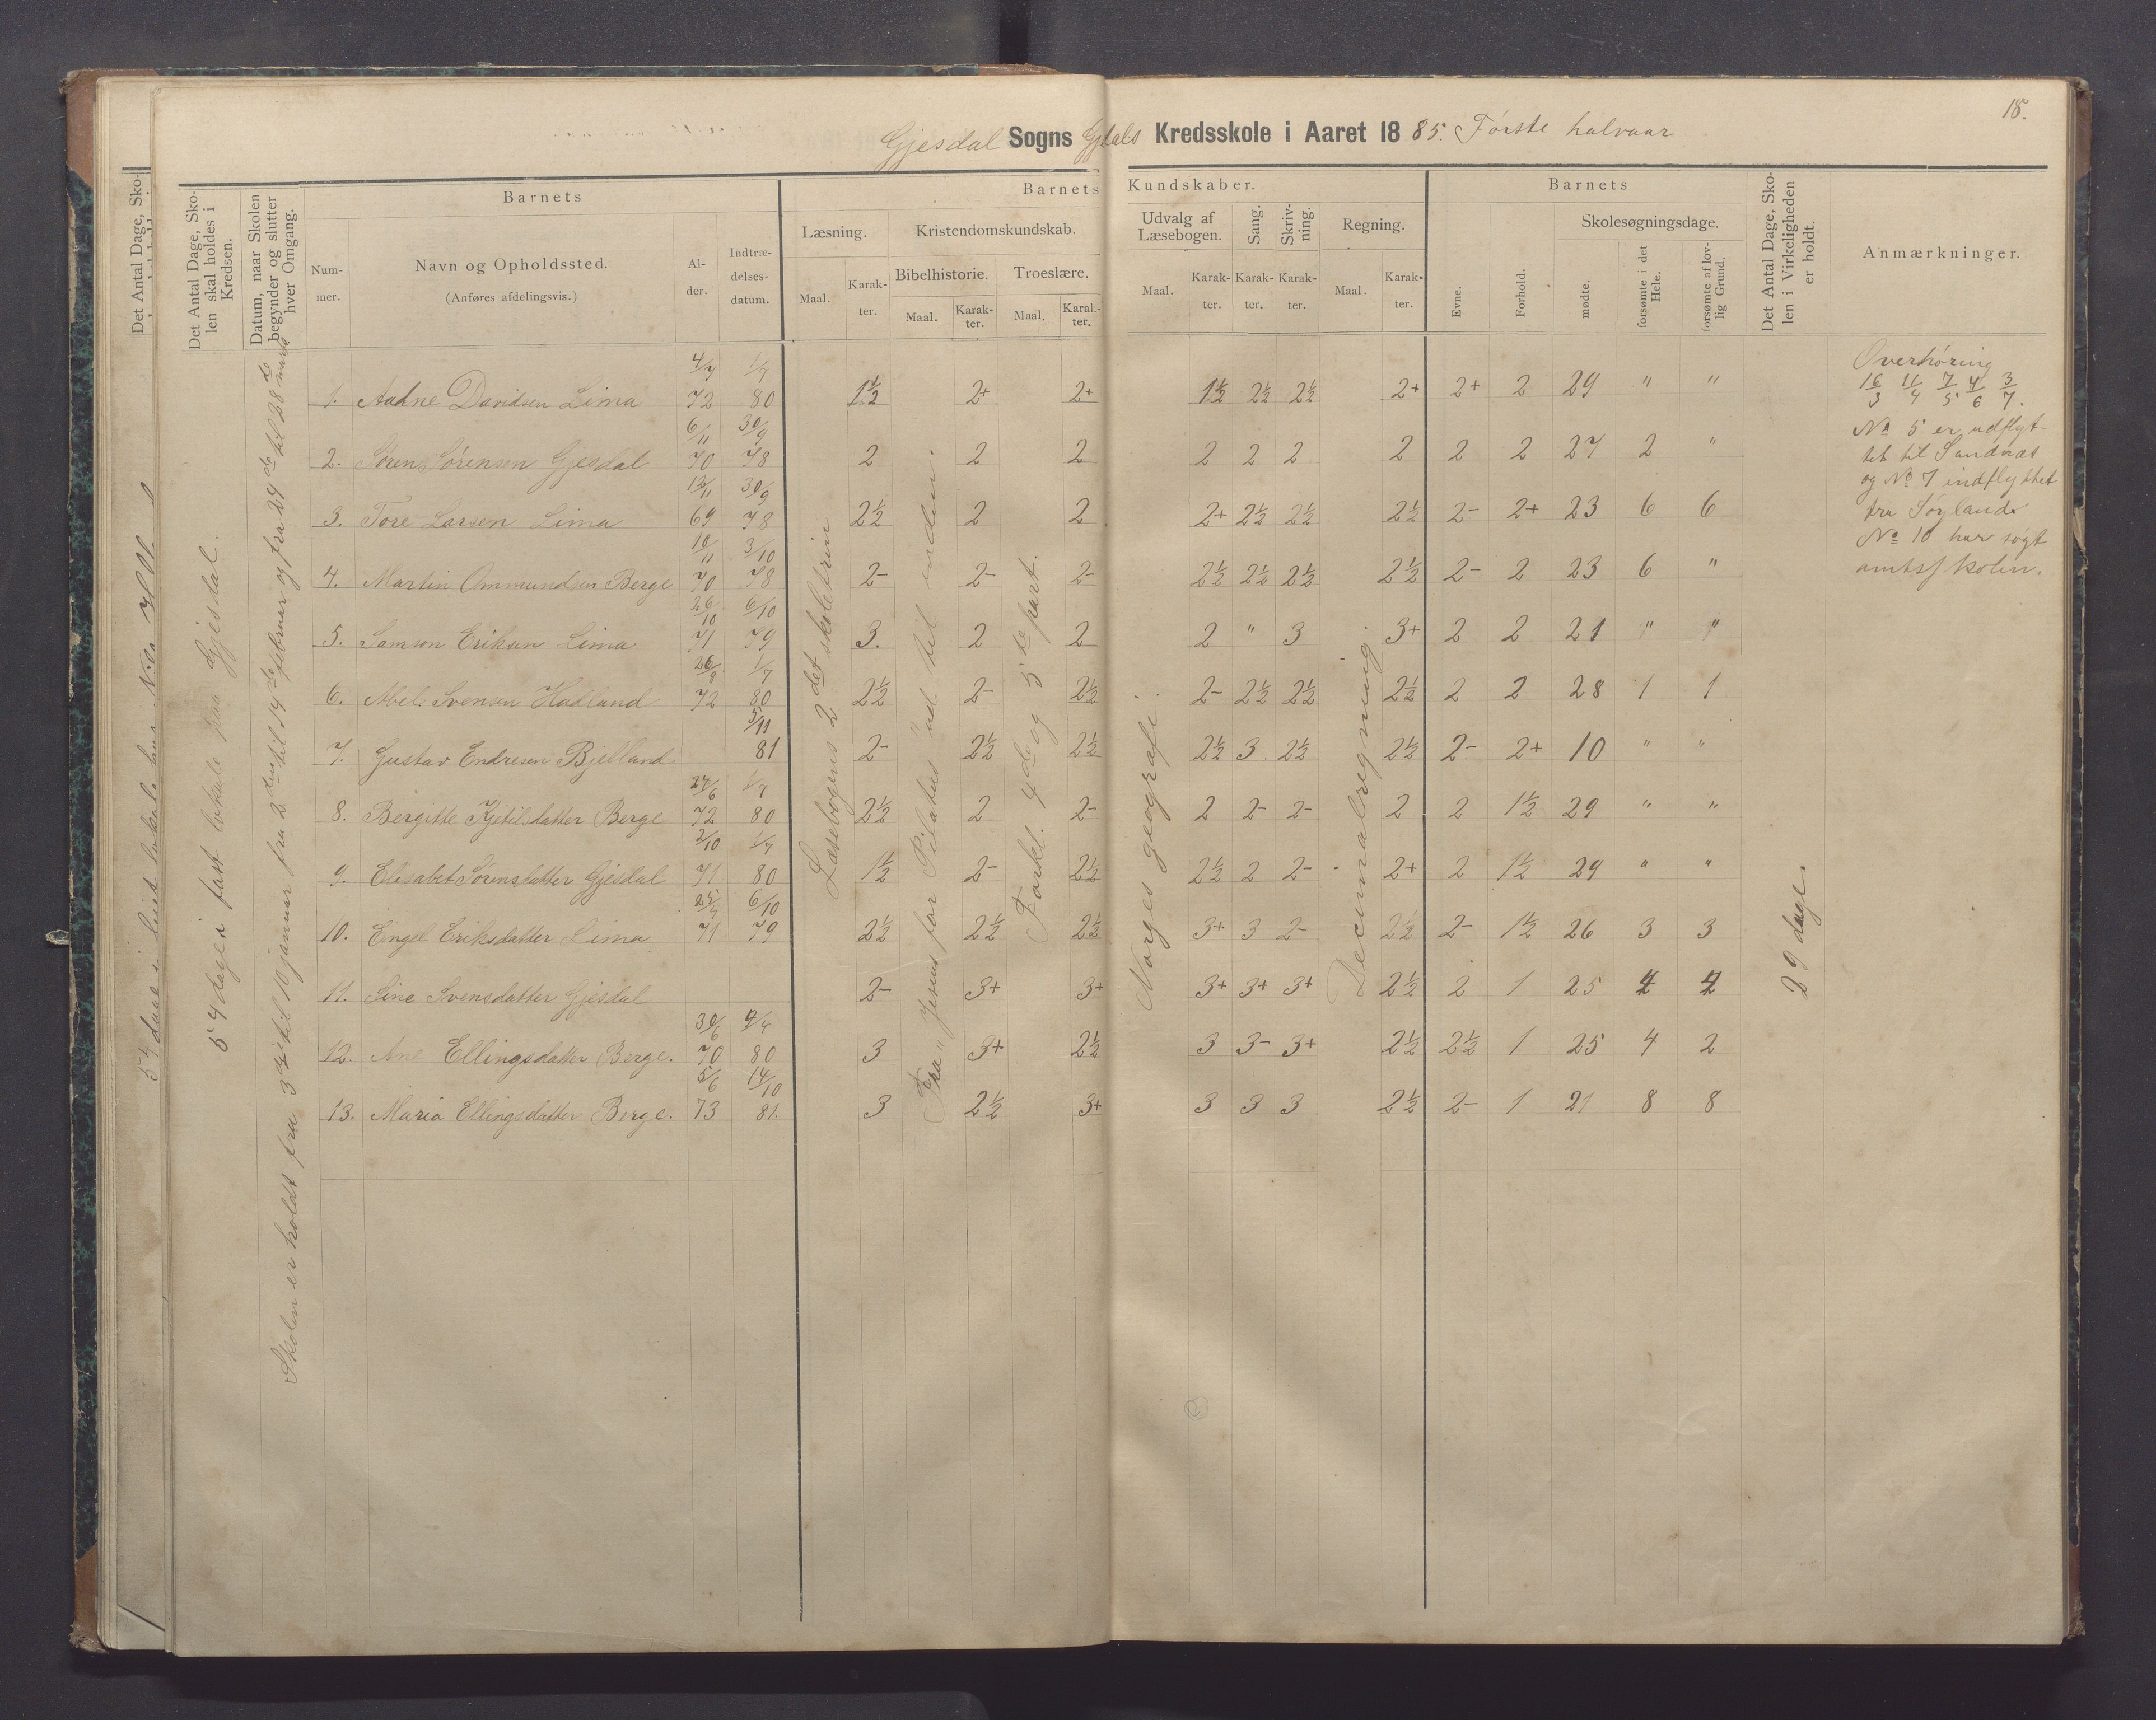 18.
Gjesdal Sogns Gjdals Kredsskole i Aaret 1885. Første halvaar
Det Antal Dage, Sko-
Det Antal Dage, Sko-
len skal holdes i
Kredsen.
Datum, naar Skolen
begynder og slutter
hver Omgang.
Barnets
Num-
mer.
Navn og Opholdssted.
(Anføres afdelingsvis.)
Al-
der.
Indtræ-
delses-
datum.
Barnets Kundskaber.
Læsning.
Maal.
Karak-
ter.
Kristendomskundskab.
Bibelhistorie.
Maal.
Karak-
ter.
Troeslære.
Maal.
Karak-
ter.
Udvalg af
Læsebogen.
Maal.
Karak-
ter.
Sang.
Karak-
ter.
Skriv-
ning.
Karak-
ter.
Regning.
Maal.
Karak-
ter.
Barnets
Evne.
Forhold.
Skolesøgningsdage.
mødte.
forsømte i det
Hele.
forsømte af lov-
lig Grund.
Det Antal Dage, Sko-
len i Virkeligheden
er holdt.
Anmærkninger.
54 dage i fast lokale paa Gjesdal.
Skolen er holdt fra 3die til 10 januar fra 2den til 14de februar og fra 24de til 28de marts
Læsebogens 2det skoletrin
Fra „Jesus for Pilatus" ud til enden.
Forkl. 4de og 5te part.
Norges geografi.
Decimalregning
29 dage.
1. Aadne Davidsen Lima 4/7 72 1/7 80 1½ 2+ 2+ 1½ 2½ 2½ 2+ 2+ 2 29 " "
2. Søren Sørensen Gjesdal 6/11 70 30/9 78 2 2 2 2 2 2 2 2 2 27 2 "
3. Tore Larsen Lima 12/11 69 30/9 78 2½ 2 2 2+ 2½ 2½ 2½ 2- 2+ 23 6 6
4. Martin Ommundsen Berge 10/11 70 3/10 78 2- 2- 2- 2½ 2½ 2½ 2½ 2- 2 23 6 "
5. Samson Eriksen Lima 26/10 71 6/10 79 3. 2 2 2 " 3 3+ 2 2 21 " "
6. Abel Svensen Hadland 26/8 72 1/7 80 2½ 2- 2½ 2- 2½ 2½ 2½ 2 2 28 1 1
7. Gustav Endresen Bjelland 5/11 81 2- 2½ 2½ 2½ 3. 2½ 2½ 2- 2+ 10 " "
8. Bergitte Kjetilsdatter Berge 27/6 72 1/7 80 2½ 2 2- 2 2- 2- 2 2 1½ 29 " "
9. Elisabet Sørensdatter Gjesdal 2/10 71 1/7 80 1½ 2- 2½ 2½ 2 2- 2+ 2 1½ 29 " "
10. Engel Eriksdatter Lima 25/4 71 6/10 79 2½ 2½ 2½ 3+ 3 2- 2½ 2- 1½ 26 3 3
11. Sine Svensdatter Gjesdal 2- 3+ 3+ 3+ 3+ 3+ 2½ 2 1 25 4 4
12. Ane Ellingsdatter Berge. 30/6 70 80 3 3+ 2½ 3 3- 3+ 2½ 2½ 1 25 4 2
13. Maria Ellingsdatter Berge. 5/6 73 14/10 81. 3 2½ 3+ 3 3 3 2½ 2- 1 21 8 8
Overhøring
16/3 11/4 7/5 4/6 3/7.
No 5 er udflyt-
tet til Sandnæs
og No 7 indflyttet
fra Søyland
No 10 har søgt
amtsskolen.